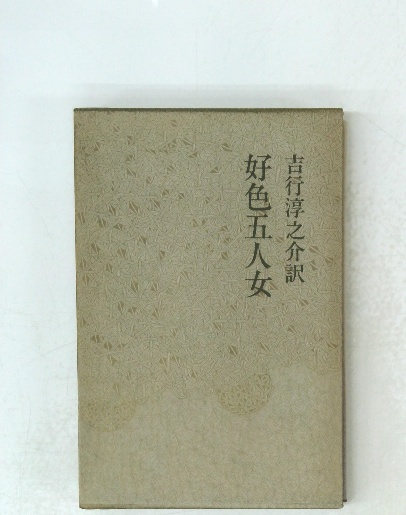 吉行淳之介訳
好色五人女